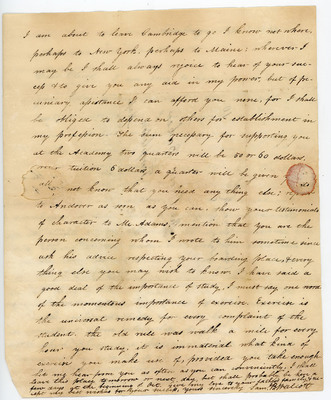 I am about to leave Cambridge to go I know not where,
perhaps to New York. perhaps to Maine: wherever I
may be I shall always rejoice to hear of your suc-
cess & to give you any aid in my power, but of pe-
cuniary assistance I can afford you none, for I shall
be obliged to depend on others for establishment in
my profession. The sum necessary for supporting you
at the Academy two quarters will be 50 or 60 dollars,
tuition 5 dollars a quarter will be given
not know that you need any thing else:
to Andover as soon as you can. show your testimonials
of character to Mr Adams, mention that you are the
person concerning whom I wrote to him sometime since
ask his advice respecting your boarding place, & every
thing else you may wish to know. I have said a
good deal of the importance of study, I must say one word
of the momentous importance of exercise. Exercise is
the universal remedy for every complaint of the
student. the old rule was walk a mile for every
hour you study, it is immaterial what kind of
exercise you make use of, provided you take enough
let me hear from you as often as you can conveniently, I shall
leave this place tomorrow or next day, but shall probably be here
at commencement. give my love to your father, family, & ac-
cept my best wishes for your success, yours sincerely